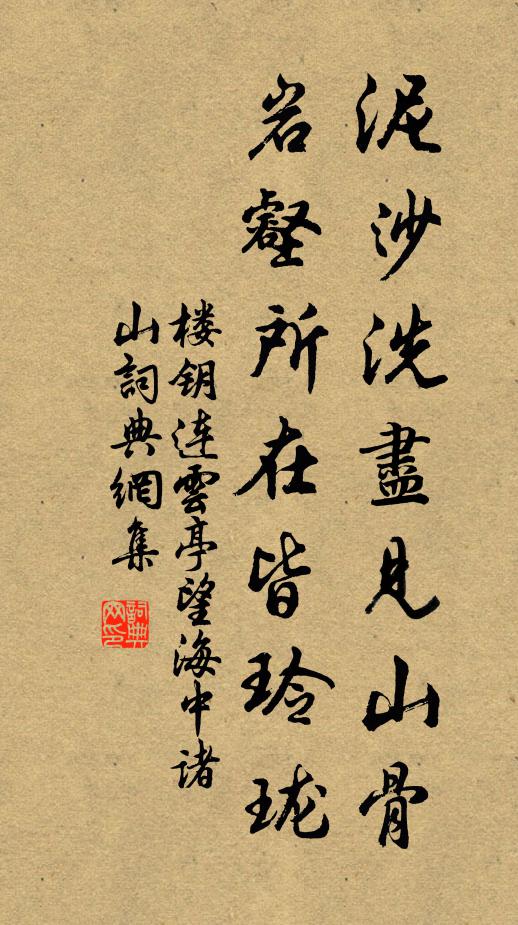 泥沙洗盡見山骨
岩壑所在皆玲珑
楼钥连雲亭望海中诸
山詞典網集
詞典
网印